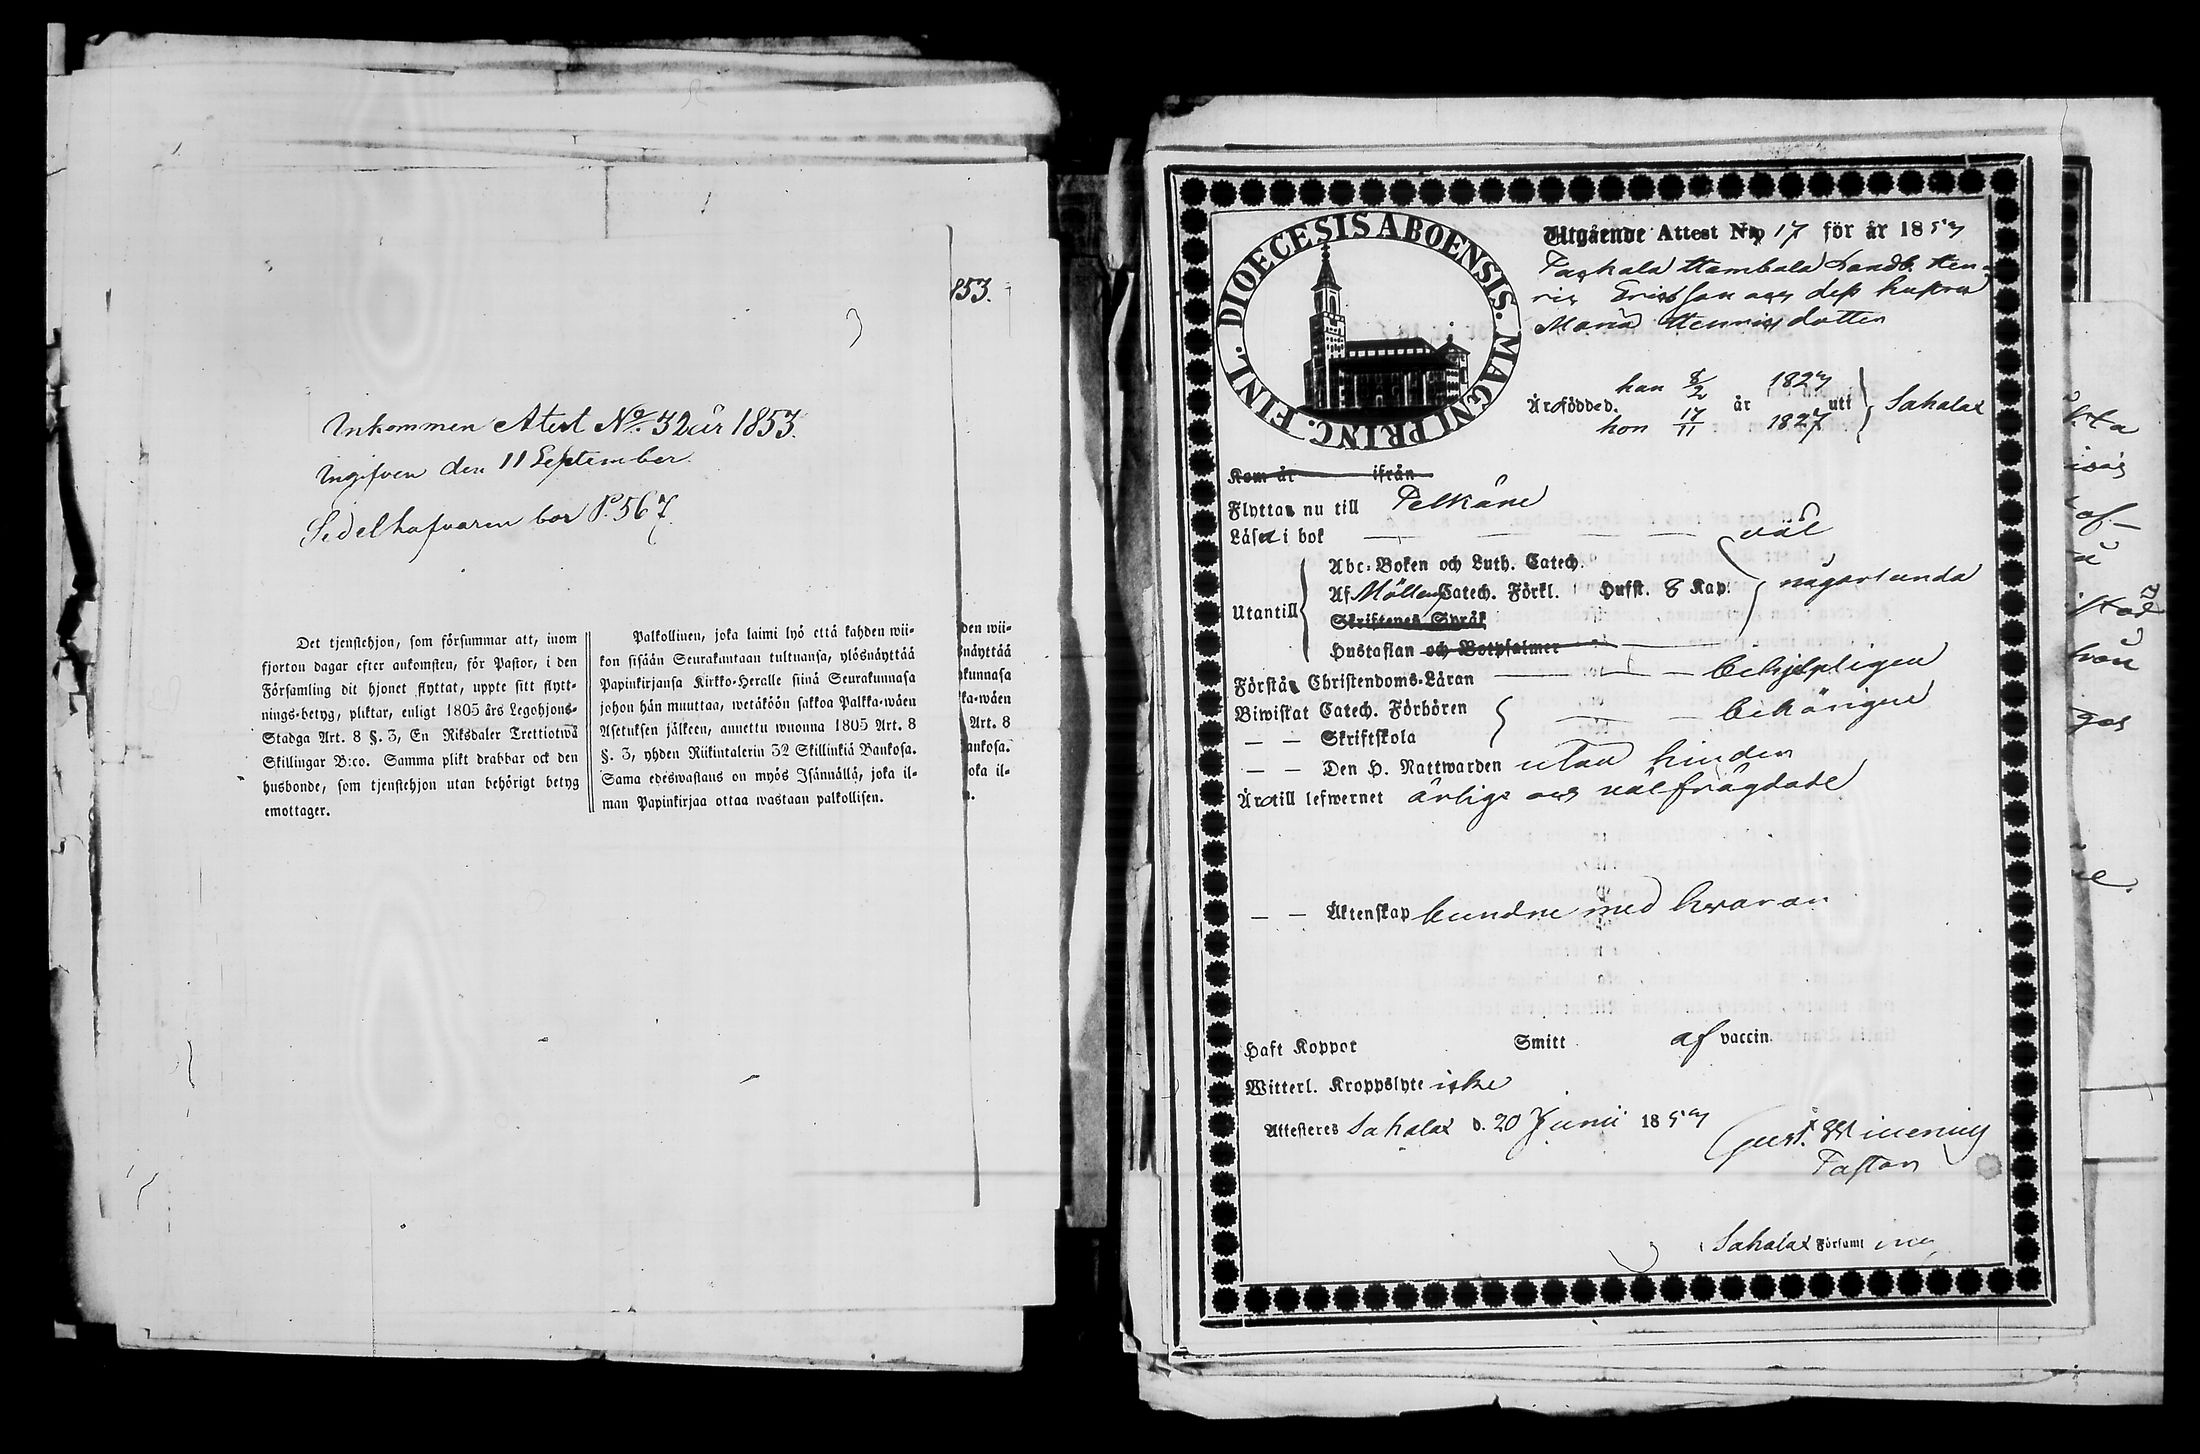 Inkommen Atest No. 32 år 1853.
Ingifven den 11 September.
Sedelhafvaren bor P. 567
Det tjenstehjon, som försummar att, inom
fjorton dagar efter ankomsten, för Pastor, i den
Församling dit hjonet flyttat, uppte sitt flytt-
nings-betyg, pliktar, enligt 1805 års Legohjons-
Stadga Art. 8 §. 3, En Riksdaler Trettiotwå
Skillingar B:co. Samma plikt drabbar ock den
husbonde, som tjenstehjon utan behörigt betyg
emottager.
Palkollinen, joka laimi lyö että kahden wii-
kon sisään Seurakuntaan tultuansa, ylösnäyttää
Papinkirjansa Kirkko-Heralle siinä Seurakunnasa
johon hän muuttaa, wetäköön sakkoa Palkka-wäen
Asetuksen jälkeen, annettu wuonna 1805 Art. 8
§. 3, yhden Riikintalerin 32 Skillinkiä Bankosa.
Sama edeswastaus on myös Isännällä, joka il-
man Papinkirjaa ottaa wastaan palkollisen.
853.
den wii-
snäyttää
kunnasa
ka-wäen
Art. 8
ankosa.
joka il-
n.
DIOECESIS ABOENSIS. MAGNI PRINC. FINL.
Utgående Attest No 17 för år 1853
Hambala Landb. Hen-
ric Ericsson och dess hustru
Maria Henricsdotter
han 8/2 1823
Äro födde d. år uti Sahalax
hon 17/11 1827
Kom år ifrån
Flyttar nu till Pelkäne
Läser i bok — — — — väl
Abc-Boken och Luth. Catech.
Utantill Af Möllers Catech. Förkl. Hufst. 8 Kap. någorlunda
Skriftenes Språk
Hustaflan och Botpsalmer
Förstår Christendoms-Läran — — behjelpligen
Biwistat Catech. Förhören — — behörigen
— — Skriftskola
— — Den H. Nattwarden utan hinder
Äro till lefwernet ärlige och välfrägdade
— — Äktenskap bundne med hvaran
Haft Koppor Smitt af vaccin.
Witterl. Kroppslyte icke
Attesteres Sahalax d. 20 Junii 1853
Gust.
Pastor
Sahalax Församl ing